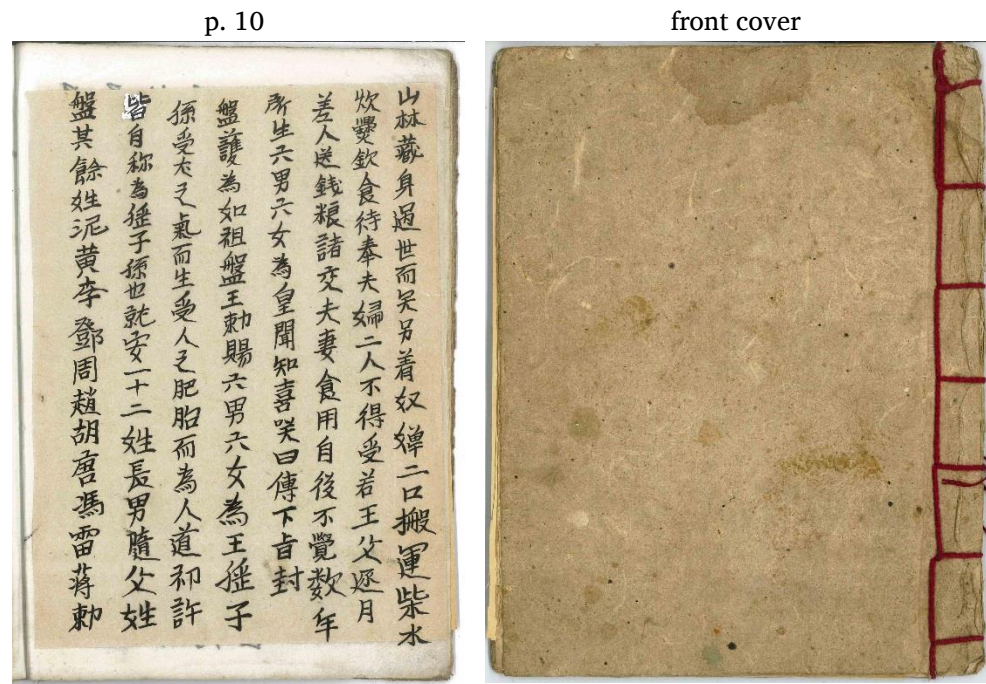 p. 10
front cover
山林藏身過世而矣另着奴婢二口搬運柴水
炊爨飲食待奉夫婦二人不得受若王父逐月
差人送錢粮諸交夫妻食用自後不覺数年
所生六男六女為皇聞知喜笑曰傳下旨封
盤護為如祖盤王勅賜六男六女為王猺子
孫受犬之氣而生受人之肥胎而為人道祁許
皆自称為猺子孫也就安一十二姓長男隨父姓
盤其餘姓泥黄李鄧周趙胡唐馮雷蒋勅